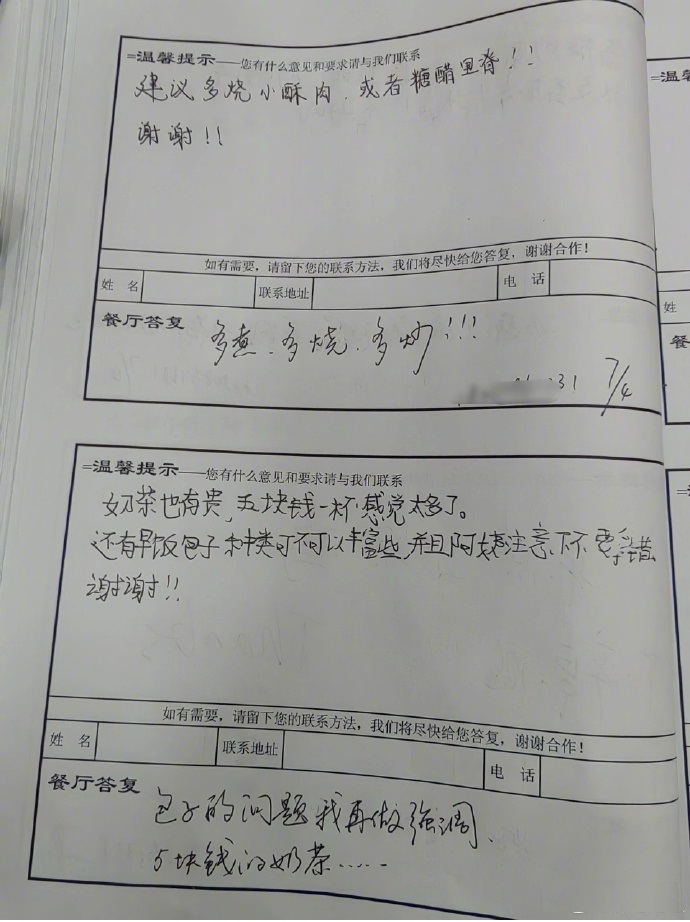 =温馨提示——您有什么意见和要求请与我们联系
建议多烧小酥肉、或者糖醋里脊!!
谢谢!!
如有需要,请留下您的联系方法,我们将尽快给您答复,谢谢合作!
姓 名 联系地址 电 话
餐厅答复
多煮、多烧、多炒!!!
31 7/4
=温馨提示——您有什么意见和要求请与我们联系
奶茶也有贵,五块钱一杯感觉太多了。
还有早饭包子种类可不可以丰富些,并且阿姨注意下不要弄错
谢谢!!
如有需要,请留下您的联系方法,我们将尽快给您答复,谢谢合作!
姓 名 联系地址 电 话
餐厅答复
包子的问题我再做强调、
5块钱的奶茶……
=温馨
姓
餐
=温
姓
餐